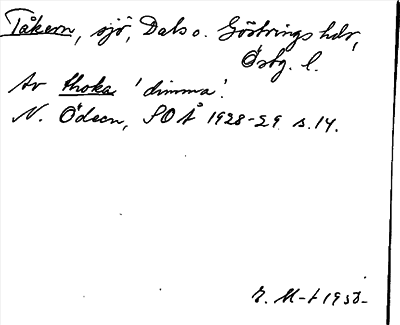 Tåkern, sjö, Dals o. Göstrings hdr,
Östg. l.
Av thoka 'dimma'.
N. Ödeen, SOÅ 1928-29 s. 14.
M-t 195